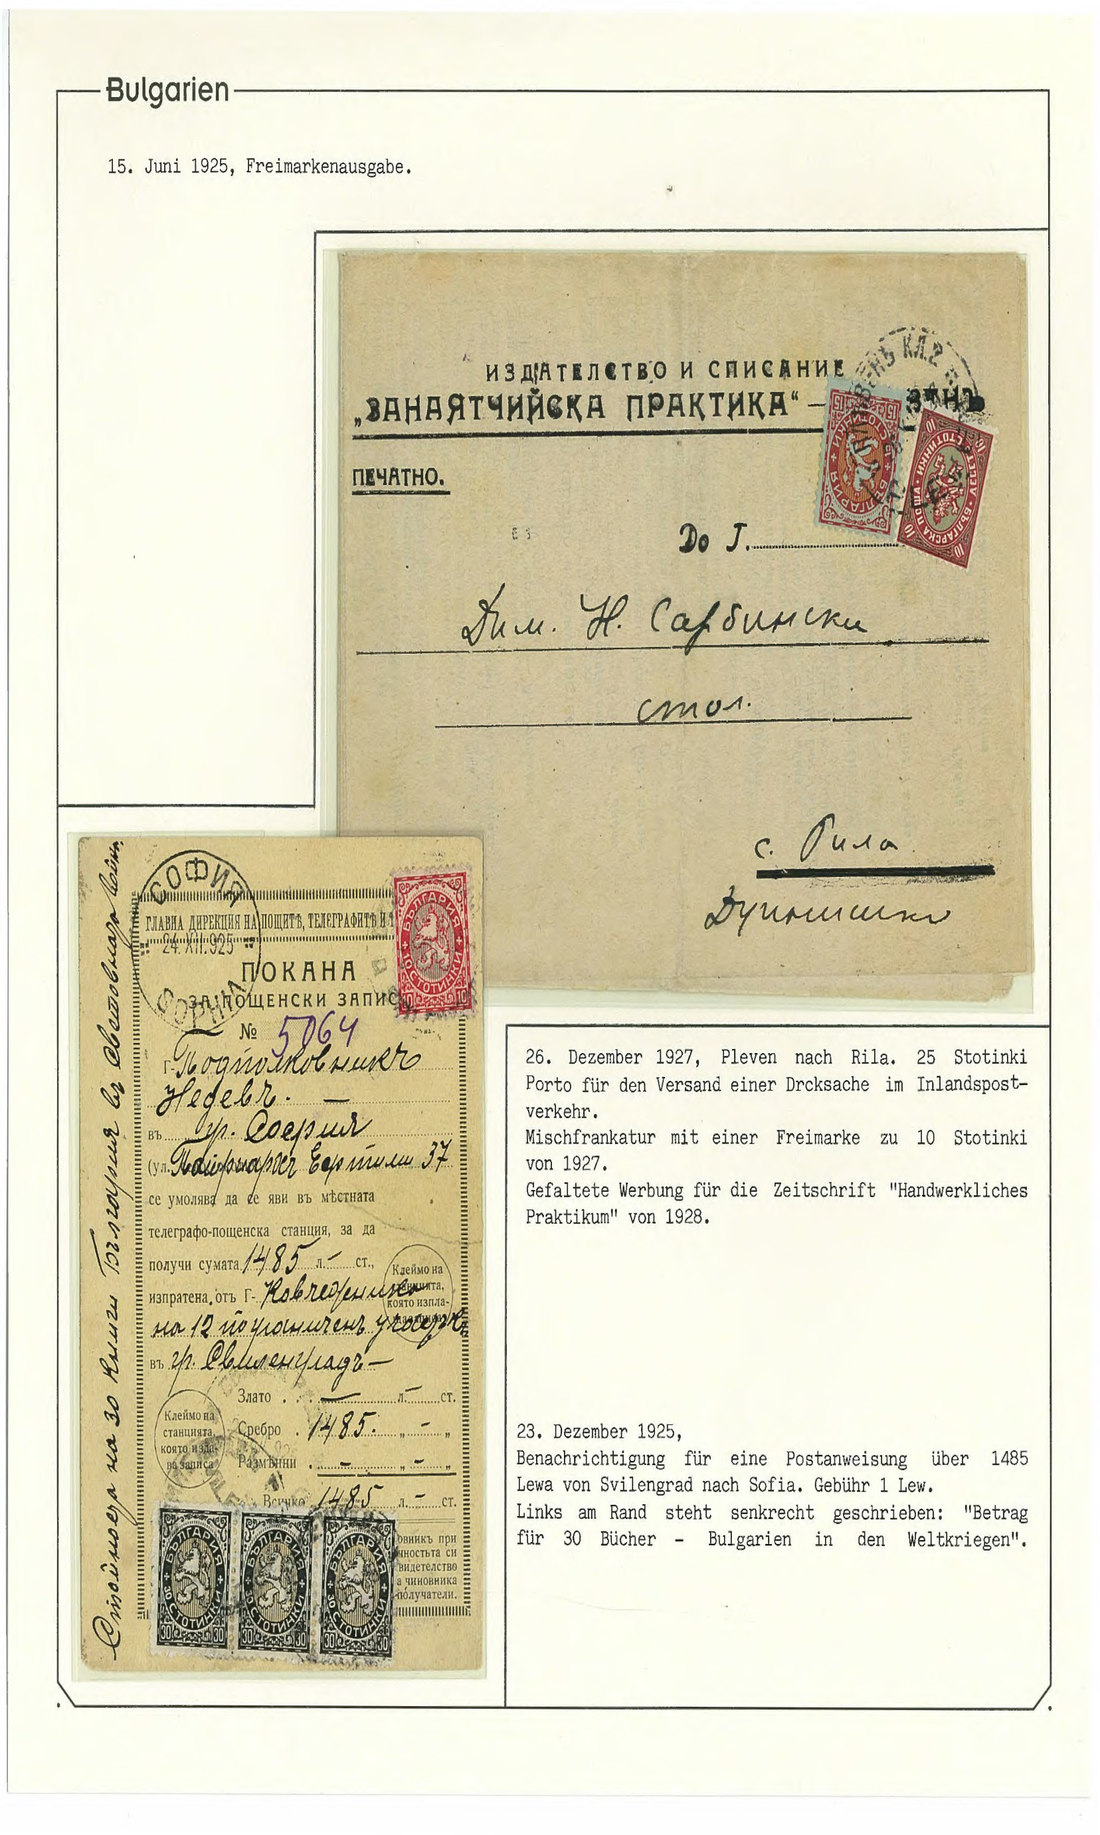 Bulgarien
15. Juni 1925, Freimarkenausgabe.
ИЗДАТЕЛСТВО И СПИСАНИЕ
„ЗАНАЯТЧИЙСКА ПРАКТИКА“ —
ПЕЧАТНО.
До Г.
Дим. Н. Сарбински
стол.
с. Рила
Дупнишко
ПЛѢВЕНЪ КЛ.2
15 СТОТИНКИ 15
БЪЛГАРИЯ
10 ДЕСЕТ СТОТИНКИ 10
БЪЛГАРСКА ПОЩА
26. Dezember 1927, Pleven nach Rila. 25 Stotinki
Porto für den Versand einer Drcksache im Inlandspost-
verkehr.
Mischfrankatur mit einer Freimarke zu 10 Stotinki
von 1927.
Gefaltete Werbung für die Zeitschrift "Handwerkliches
Praktikum" von 1928.
23. Dezember 1925,
Benachrichtigung für eine Postanweisung über 1485
Lewa von Svilengrad nach Sofia. Gebühr 1 Lew.
Links am Rand steht senkrecht geschrieben: "Betrag
für 30 Bücher - Bulgarien in den Weltkriegen".
СОФИЯ
24.XII.925
ГЛАВНА ДИРЕКЦИЯ НА ПОЩИТѢ, ТЕЛЕГРАФИТѢ И
ПОКАНА
ЗА ПОЩЕНСКИ ЗАПИС
№ 5064
г. Подполковникъ
Недевъ. —
въ гр. София
(ул. Патриархъ Евтими 37
се умолява да се яви въ мѣстната
телеграфо-пощенска станция, за да
получи сумата 1485 л. – ст.,
изпратена отъ Г- Ковчежника
на 12 пограниченъ участъкъ
въ гр. Свиленградъ —
Злато . . . — л. – ст.
Сребро . 1485. „ – „
Размѣнни . – „ – „
Всичко 1485 л. – ст.
Клеймо на
станцията,
която изпла-
Клеймо на
станцията,
която изда-
ва записа
овникъ при
ностьта си
видетелство
а чиновника
получатели.
Стойностъта на 30 книги България въ Световната война.
БЪЛГАРИЯ
10 СТОТИНКИ 10
БЪЛГАРИЯ
30 СТОТИНКИ 30
БЪЛГАРИЯ
30 СТОТИНКИ 30
БЪЛГАРИЯ
30 СТОТИНКИ 30